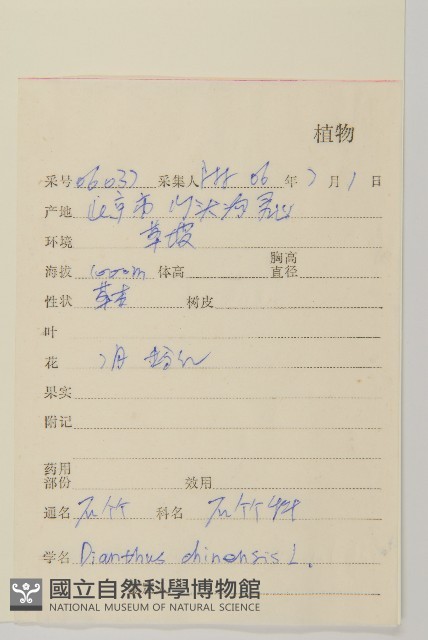 植物
采号 06037 采集人 06 年 7 月 1 日
产地 北京市 门头沟 灵山
环境 草坡
海拔 1000m 体高 胸高直径
性状 草本 树皮
叶
花 7月
果实
附记
药用部份 效用
通名 石竹 科名 石竹科
学名 Dianthus chinensis L.
國立自然科學博物館
NATIONAL MUSEUM OF NATURAL SCIENCE